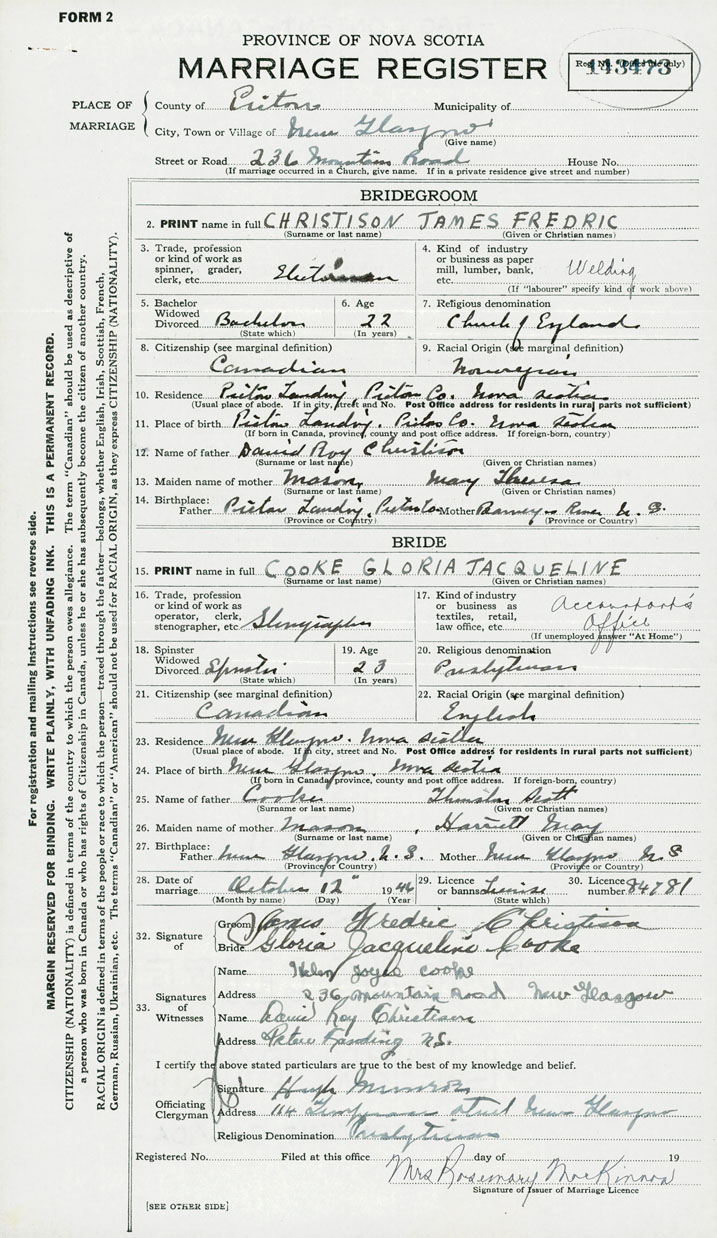 FORM 2
PROVINCE OF NOVA SCOTIA
MARRIAGE REGISTER
Reg. No. (Office use only)
143473
PLACE OF MARRIAGE
County of Pictou Municipality of
City, Town or Village of New Glasgow
(Give name)
Street or Road 236 Mountain Road House No.
(If marriage occurred in a Church, give name. If in a private residence give street and number)
BRIDEGROOM
2. PRINT name in full CHRISTISON JAMES FREDRIC
(Surname or last name) (Given or Christian names)
3. Trade, profession or kind of work as spinner, grader, clerk, etc.
4. Kind of industry or business as paper mill, lumber, bank, etc. Welding
(If "labourer" specify kind of work above)
5. Bachelor Widowed Divorced Bachelor
(State which)
6. Age 22
(In years)
7. Religious denomination
Church of England
8. Citizenship (see marginal definition)
Canadian
9. Racial Origin (see marginal definition)
Norwegian
10. Residence Pictou Landing, Pictou Co. Nova Scotia
(Usual place of abode. If in city, street and No. Post Office address for residents in rural parts not sufficient)
11. Place of birth Pictou Landing, Pictou Co. Nova Scotia
(If born in Canada, province, county and post office address. If foreign-born, country)
12. Name of father David Roy Christison
(Surname or last name) (Given or Christian names)
13. Maiden name of mother Mason, Mary Theresa
(Surname or last name) (Given or Christian names)
14. Birthplace: Father Pictou Landing, Pictou Co Mother Barneys River N. S.
(Province or Country) (Province or Country)
BRIDE
15. PRINT name in full COOKE GLORIA JACQUELINE
(Surname or last name) (Given or Christian names)
16. Trade, profession or kind of work as operator, clerk, stenographer, etc. Stenographer
17. Kind of industry or business as textiles, retail, law office, etc. Accountant's Office
(If unemployed answer "At Home")
18. Spinster Widowed Divorced Spinster
(State which)
19. Age 23
(In years)
20. Religious denomination
Presbyterian
21. Citizenship (see marginal definition)
Canadian
22. Racial Origin (see marginal definition)
English
23. Residence New Glasgow. Nova Scotia
(Usual place of abode. If in city, street and No. Post Office address for residents in rural parts not sufficient)
24. Place of birth New Glasgow, Nova Scotia
(If born in Canada province, county and post office address. If foreign-born, country)
25. Name of father Cooke Thurston Scott
(Surname or last name) (Given or Christian names)
26. Maiden name of mother Mason, Harriett May
(Surname or last name) (Given or Christian names)
27. Birthplace: Father New Glasgow, N. S. Mother New Glasgow N S
(Province or Country) (Province or Country)
28. Date of marriage October 12 1946
(Month by name) (Day)
29. Licence or banns License
(State which)
30. Licence number 84781
32. Signature of
Groom James Fredric Christison
Bride Gloria Jacqueline Cooke
33. Signatures of Witnesses
Name Helen Joyce Cooke
Address 236 Mountain Road New Glasgow
Name David Roy Christison
Address Pictou Landing N.S.
I certify the above stated particulars are true to the best of my knowledge and belief.
Officiating Clergyman
Signature Hugh Munroe
Address 114 Temperance Street New Glasgow
Religious Denomination Presbyterian
Registered No. Filed at this office day of 19
Mrs Rosemary MacKinnon
Signature of Issuer of Marriage Licence
[SEE OTHER SIDE]
For registration and mailing instructions see reverse side.
MARGIN RESERVED FOR BINDING. WRITE PLAINLY, WITH UNFADING INK. THIS IS A PERMANENT RECORD.
CITIZENSHIP (NATIONALITY) is defined in terms of the country to which the person owes allegiance. The term "Canadian" should be used as descriptive of
a person who was born in Canada or who has rights of Citizenship in Canada, unless he or she has subsequently become the citizen of another country.
RACIAL ORIGIN is defined in terms of the people or race to which the person—traced through the father—belongs, whether English, Irish, Scottish, French,
German, Russian, Ukrainian, etc. The terms "Canadian" or "American" should not be used for RACIAL ORIGIN, as they express CITIZENSHIP (NATIONALITY).